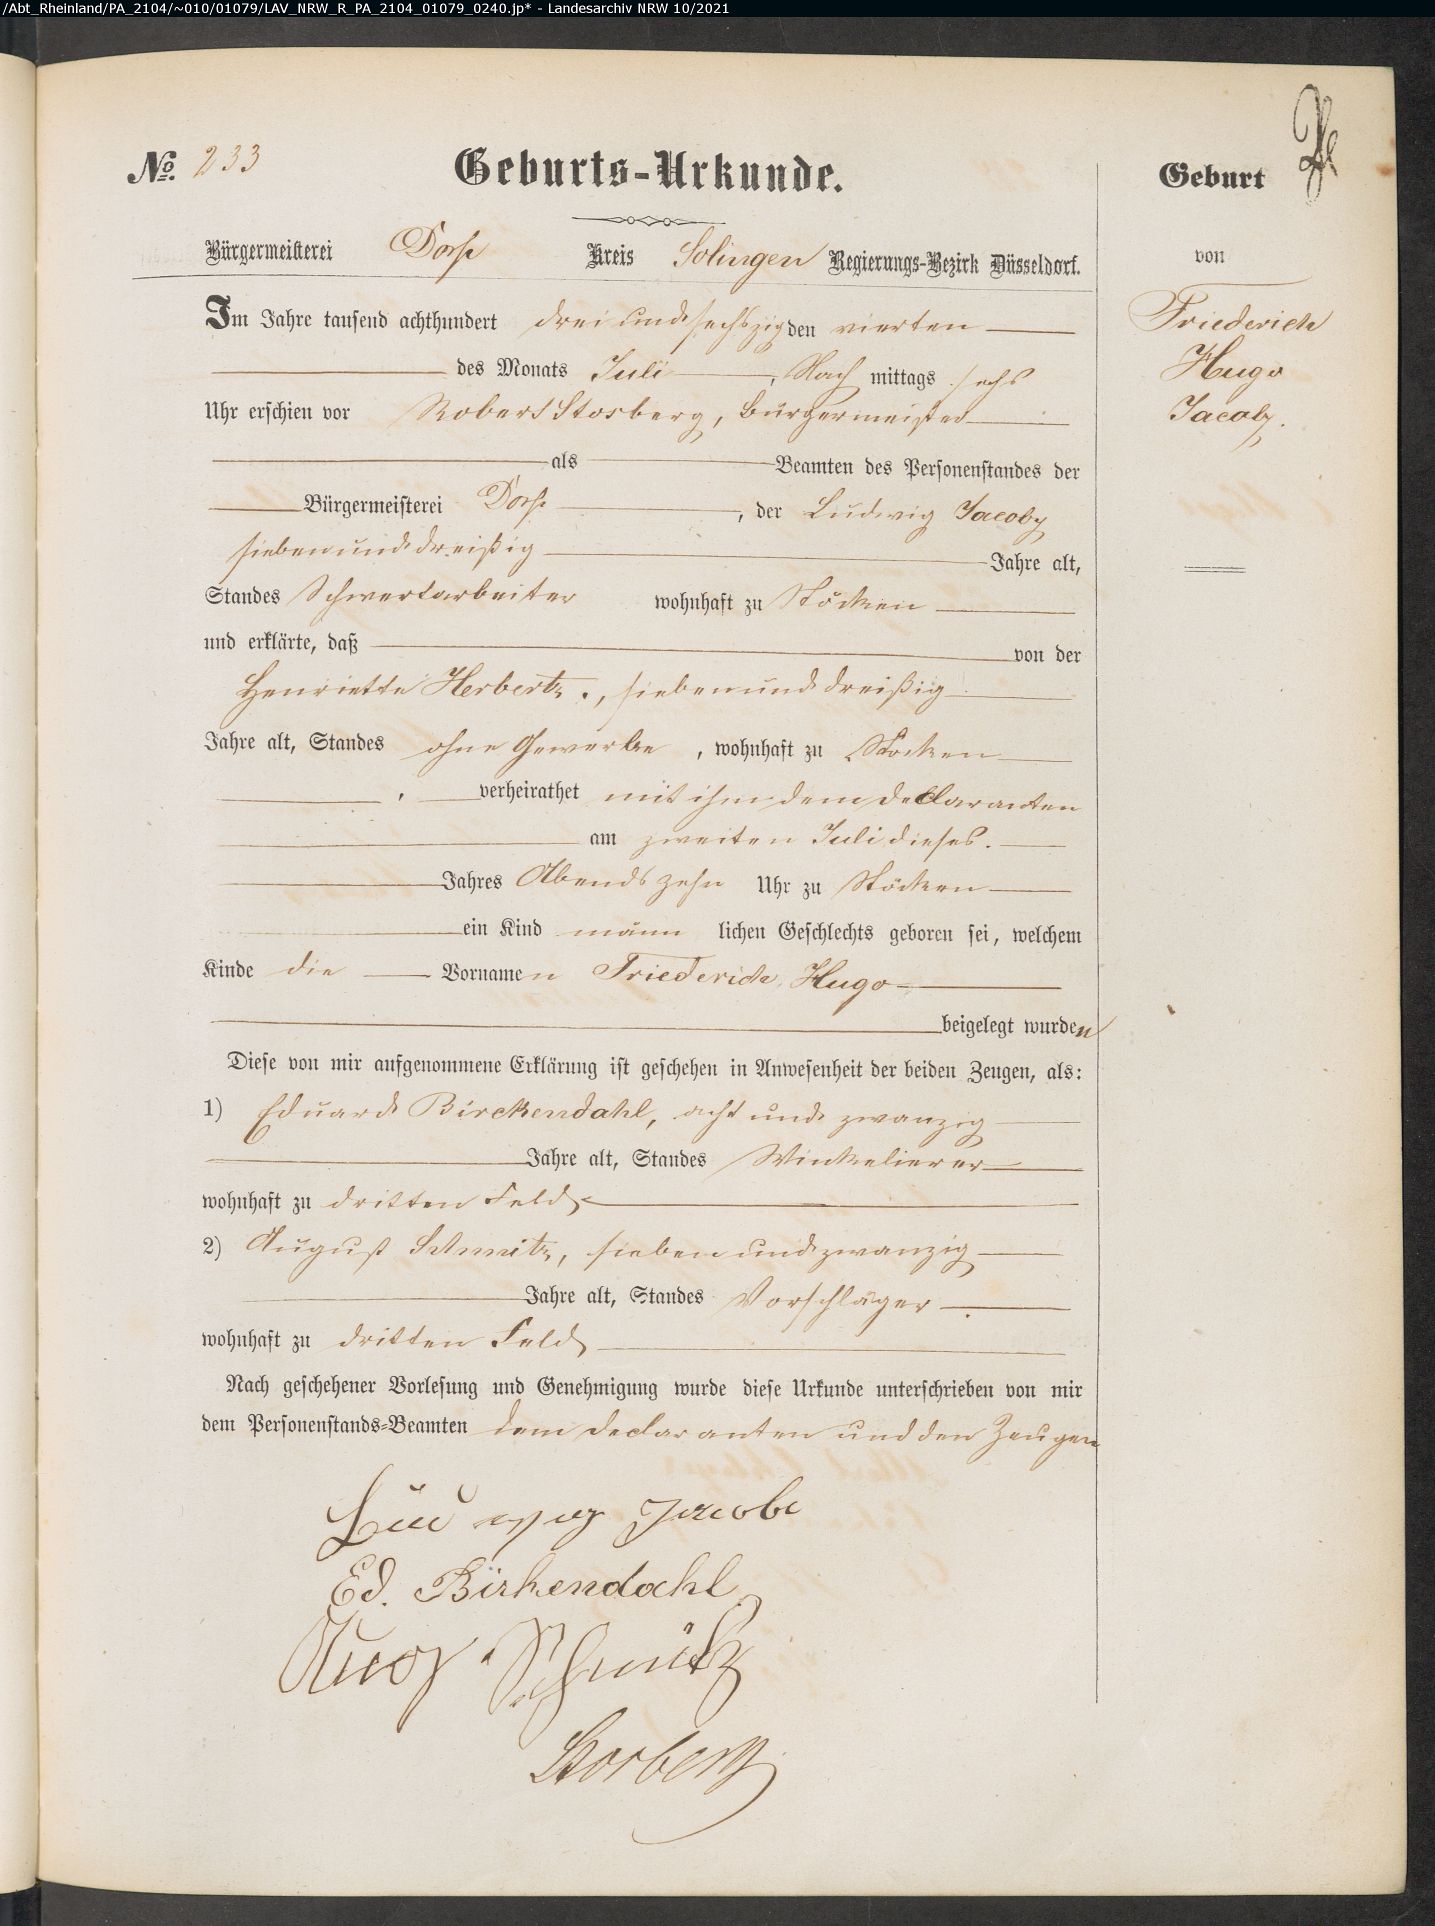 /Abt_Rheinland/PA_2104/~010/01079/LAV_NRW_R_PA_2104_01079_0240.jp* - Landesarchiv NRW 10/2021
No. 233
Geburts-Urkunde.
Bürgermeisterei Dorp Kreis Solingen Regierungs-Bezirk Düsseldorf.
Im Jahre tausend achthundert drei und sechszig den vierten
des Monats Juli, Nach mittags sechs
Uhr erschien vor Robert Stosberg, Bürgermeister
als Beamten des Personenstandes der
Bürgermeisterei Dorp, der Ludwig Jacoby
sieben und dreißig Jahre alt,
Standes Schwertarbeiter wohnhaft zu Stöcken
und erklärte, daß von der
Henriette Herbertz, sieben und dreißig
Jahre alt, Standes ohne Gewerbe, wohnhaft zu Stöcken
, verheirathet mit ihm dem Declaranten
am zweiten Juli dieses.
Jahres Abends zehn Uhr zu Stöcken
ein Kind männ lichen Geschlechts geboren sei, welchem
Kinde die Vornamen Friederich Hugo
beigelegt wurden
Diese von mir aufgenommene Erklärung ist geschehen in Anwesenheit der beiden Zeugen, als:
1) Eduard Birckendahl, acht und zwanzig
Jahre alt, Standes Winkelierer
wohnhaft zu dritten Feld
2) August Schmitz, sieben und zwanzig
Jahre alt, Standes Vorschläger
wohnhaft zu dritten Feld
Nach geschehener Vorlesung und Genehmigung wurde diese Urkunde unterschrieben von mir
dem Personenstands-Beamten dem Declaranten und den Zeugen
Ludwig Jacobi
Ed. Birkendahl
Aug. Schmitz
Stosberg
Geburt
von
Friederich
Hugo
Jacoby.